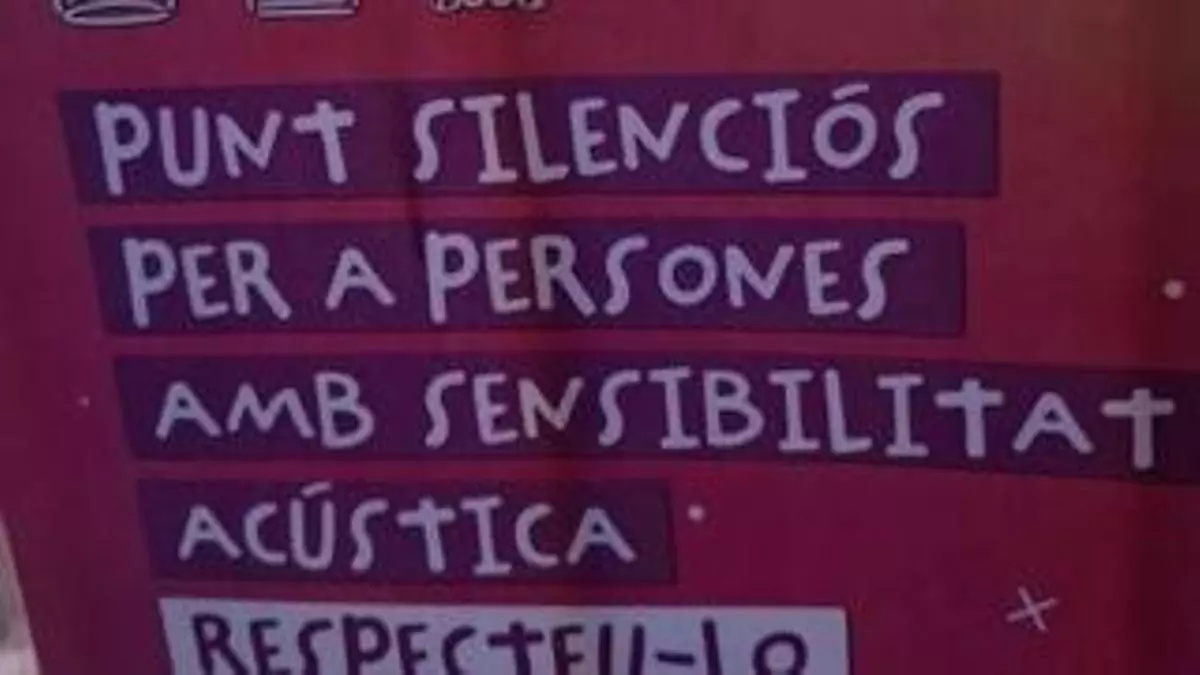 PUNT SILENCIÓS
PER A PERSONES
AMB SENSIBILITAT
ACÚSTICA
RESPECTEU-LO